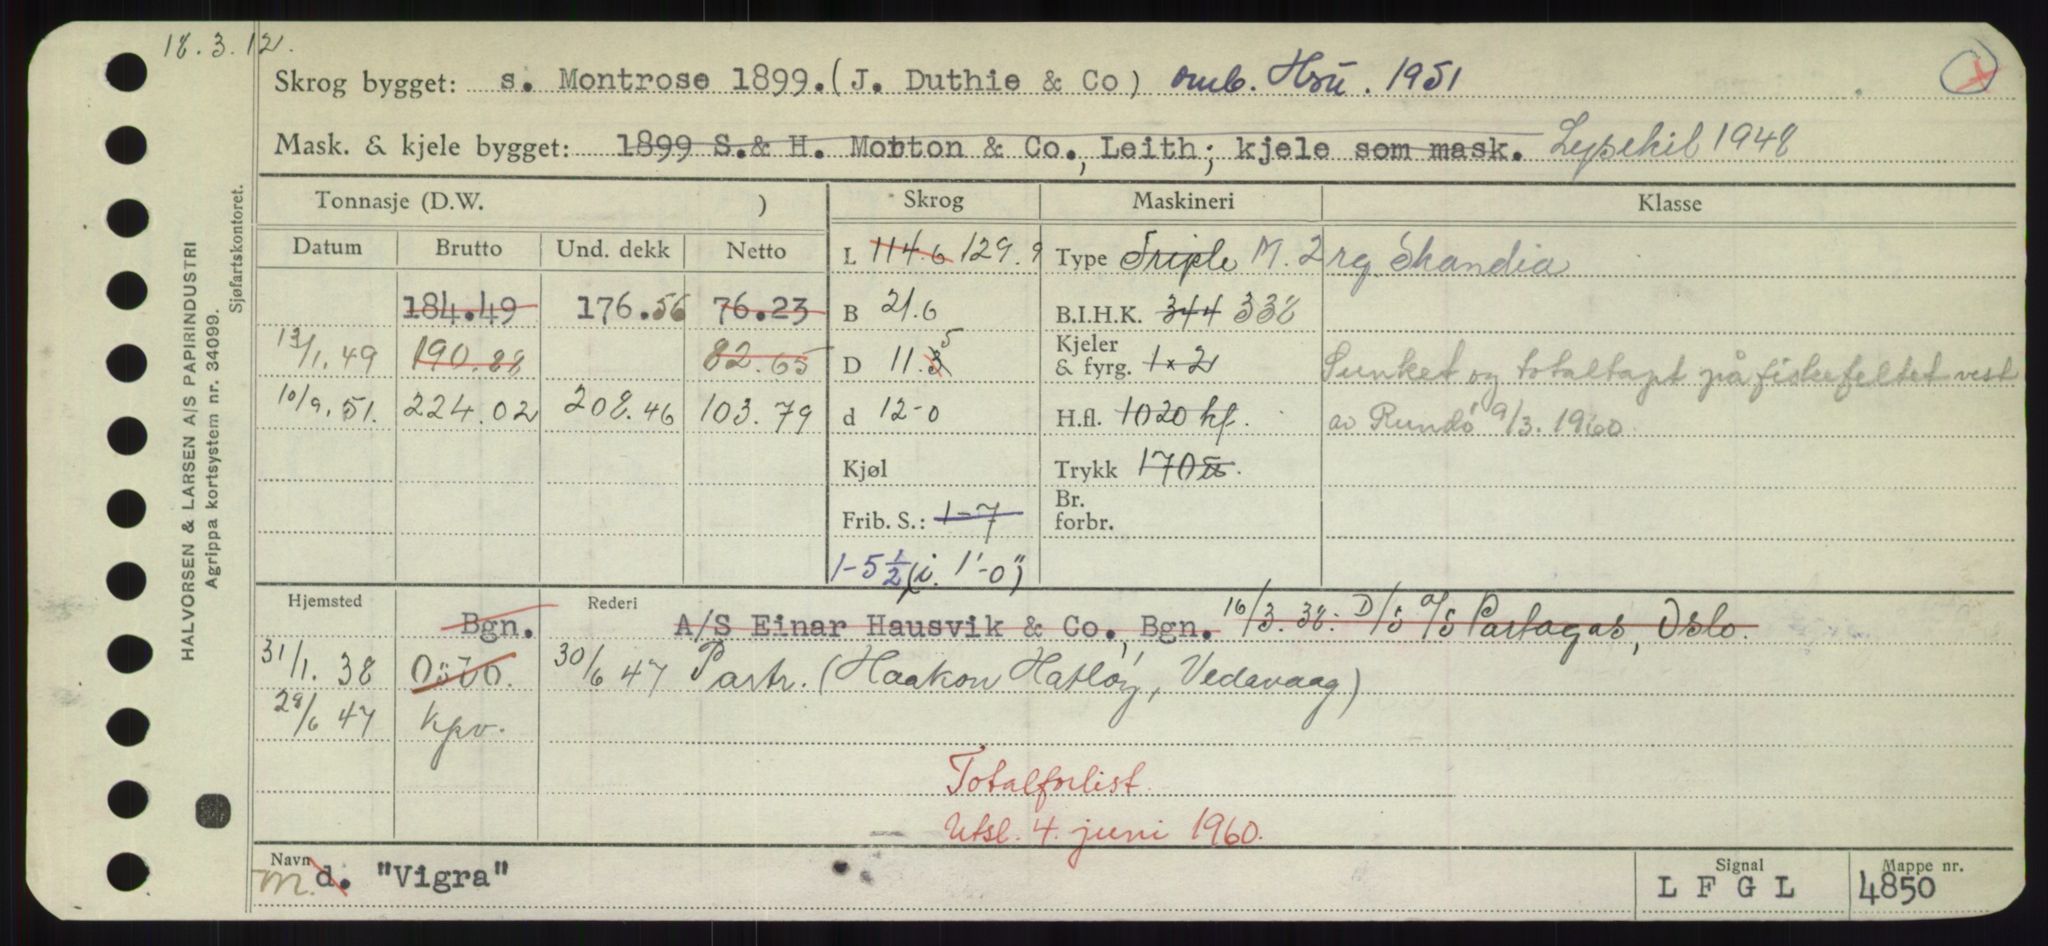 18.3.12.
Skrog bygget: s. Montrose 1899.(J. Duthie & Co) omb. Hsu. 1951
Mask. & kjele bygget: 1899 S.& H. Morton & Co., Leith; kjele som mask. Lysekil 1948
Tonnasje (D.W. ) Skrog Maskineri Klasse
Datum Brutto Und. dekk Netto L 114 6 129.9 Type Triple M. 2 rg. Skandia
184.49 176.56 76.23 B 21.6 B.I.H.K. 344 338
13/1.49 190.88 82.65 D 11.3 5 Kjeler & fyrg. 1 x 2 Sunket og totaltapt på fiskefeltet vest
10/9.51. 224.02 208.46 103.79 d 12-0 H.fl. 1020 kf. av Rundö 9/3.1960.
Kjøl Trykk 170
Frib. S.: 1-7 Br. forbr.
1-5½ (i. 1'-0")
Hjemsted Bgn. Rederi A/S Einar Hausvik & Co., Bgn. 16/3.38: D/S A/S Partagas, Oslo.
31/1.38 Oslo. 30/6 47 Partr. (Haakon Hatløy, Vedavaag)
28/6 47 Kpv.
Totalforlist.
Utsl. 4. juni 1960.
Navn m. d. "Vigra" Signal L F G L Mappe nr. 4850
HALVORSEN & LARSEN A/S PAPIRINDUSTRI
Agrippa kortsystem nr. 34099.
Sjøfartskontoret.